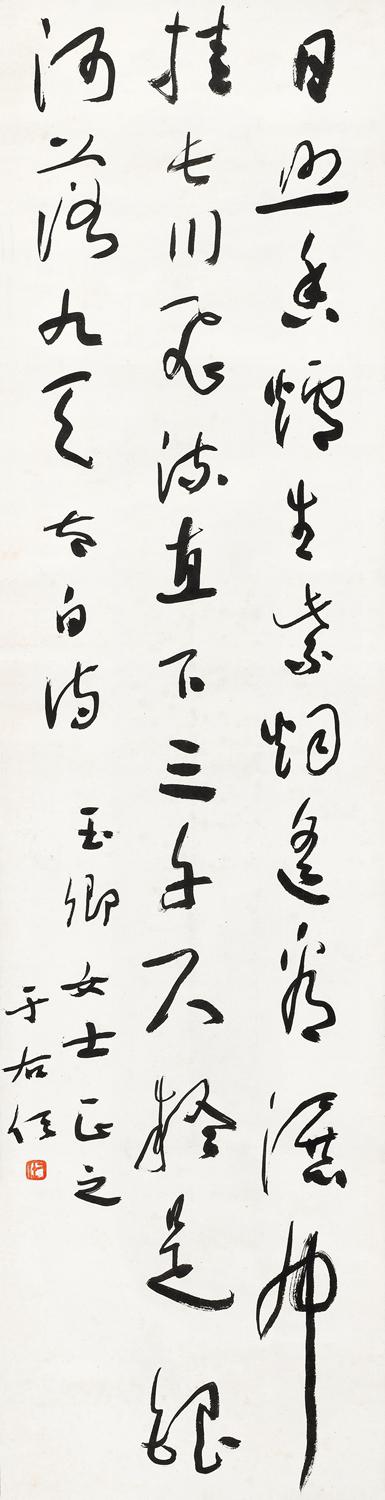 日照香爐生紫烟遙看瀑布
挂長川飛流直下三千尺疑是銀
河落九天太白詩
玉卿女士正之
于右任